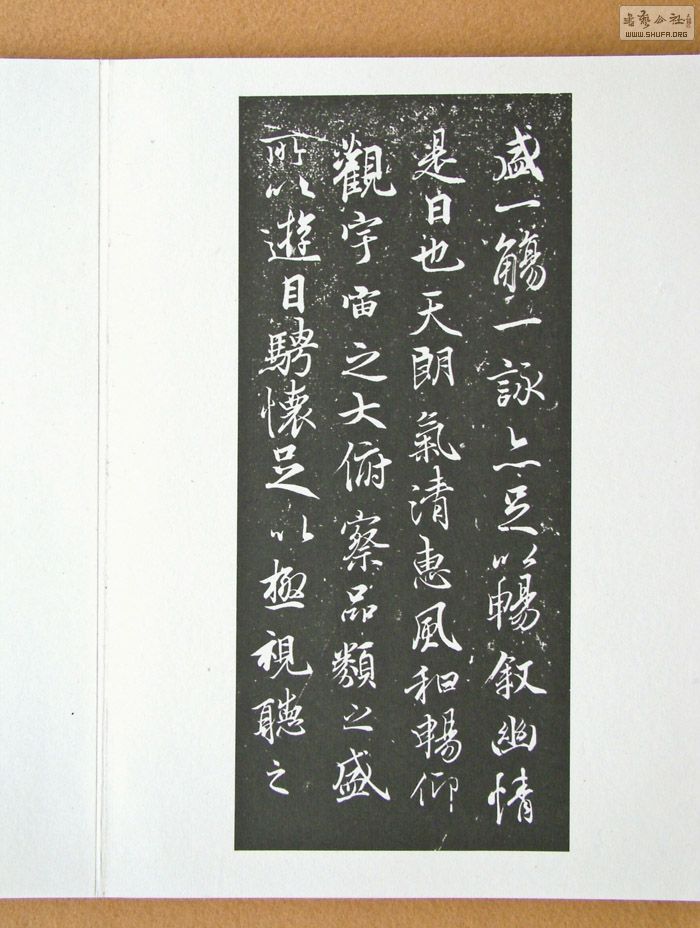 盛一觴一詠亦足以暢叙幽情
是日也天朗氣清惠風和暢仰
觀宇宙之大俯察品類之盛
所以遊目騁懷足以極視聽之
WWW.SHUFA.ORG